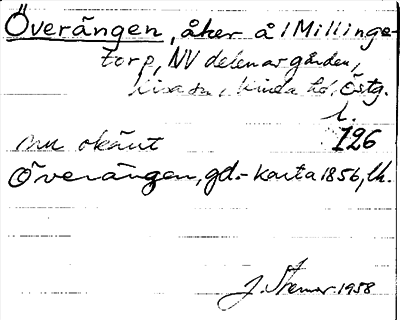 Överängen, åker å 1 Millinge-
torp, NV delen av gården,
Kisa sn, Kinda hd, Östg.
l.
126
nu okänt
Överängen, gd.- karta 1856, lh.
J. Stemar 1958